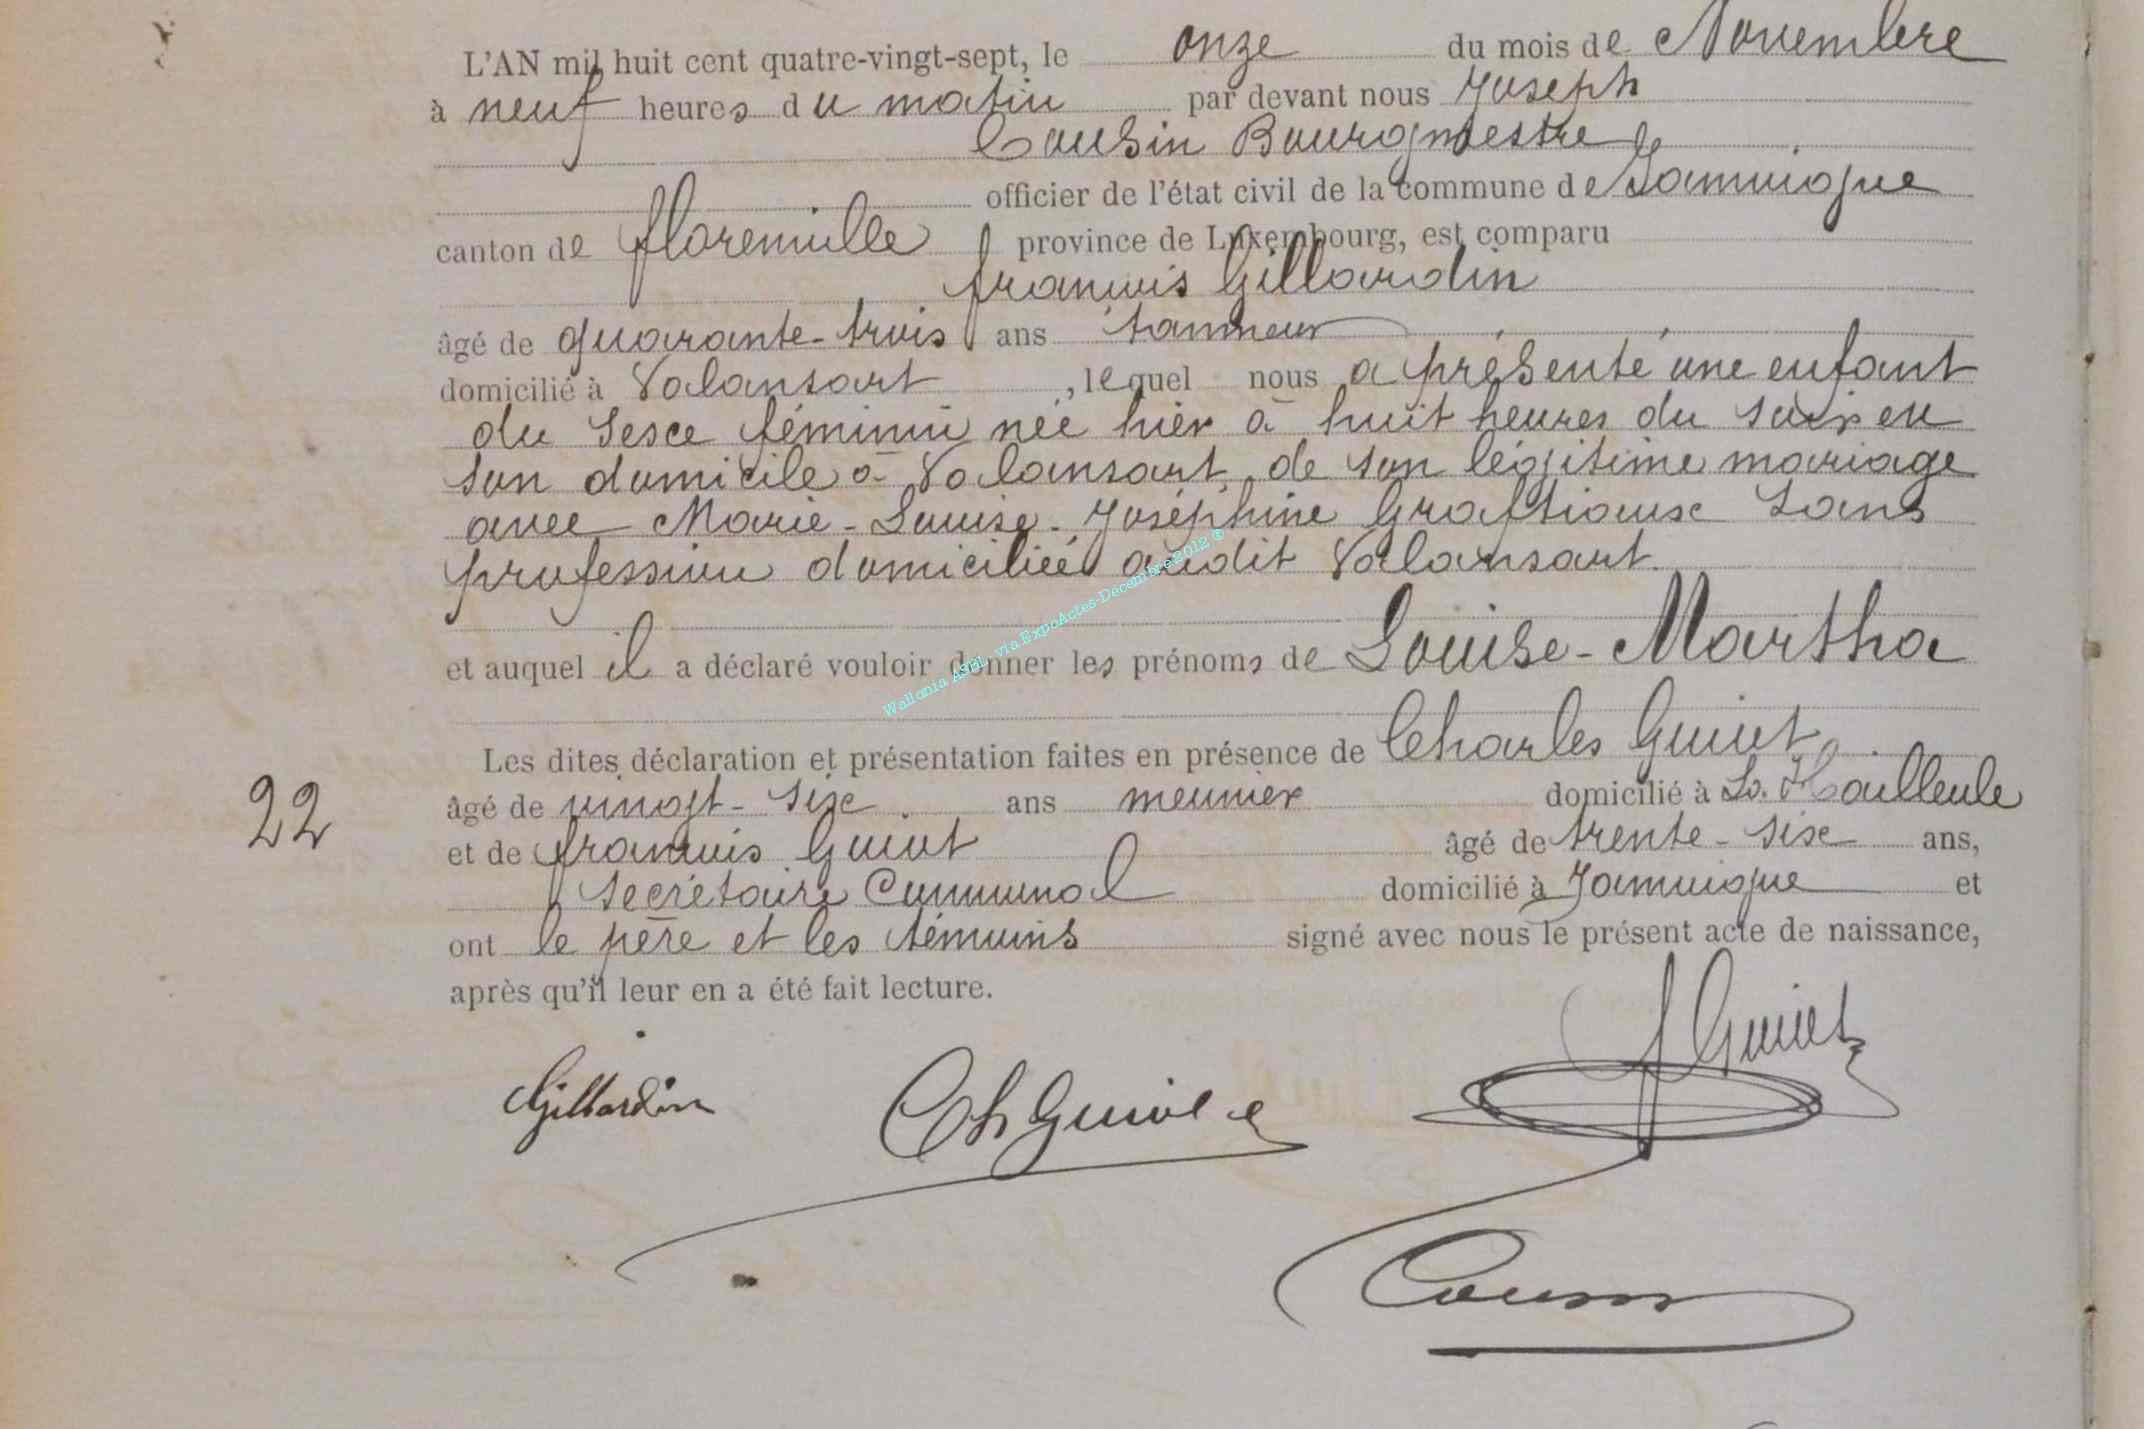 L'AN mil huit cent quatre-vingt-sept, le onze du mois de Novembre
à neuf heures du matin par devant nous Joseph
Cousin Bourgmestre
officier de l'état civil de la commune de Jamoigne
canton de florenville province de Luxembourg, est comparu
françois Gillardin
âgé de quarante-trois ans tanneur
domicilié à Valansart, lequel nous a présenté une enfant
du sexe féminin née hier à huit heures du soir en
son domicile à Valansart de son légitime mariage
avec Marie-Louise-Joséphine Graftiaux sans
profession domiciliée audit Valansart.
et auquel il a déclaré vouloir donner les prénoms de Louise-Martha
Les dites déclaration et présentation faites en présence de Charles Guiot
22
âgé de vingt-six ans meunier domicilié à La Hailleule
et de françois Guiot âgé de trente-six ans,
secrétaire Communal domicilié à Jamoigne et
ont le père et les témoins signé avec nous le présent acte de naissance,
après qu'il leur en a été fait lecture.
Gillardin Ch Guiot f Guiot
Cousin
Wallonia ASBL via ExpoActes-Décembre 2012 ©